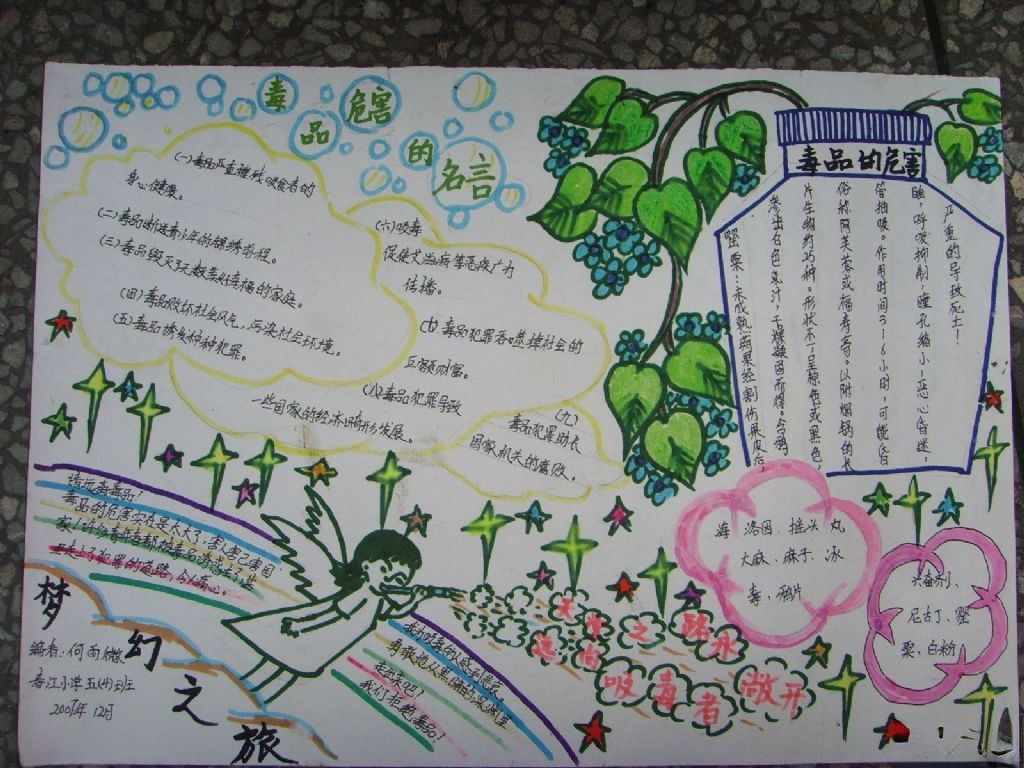 毒品危害的名言
(一)毒品严重摧残吸食者的
身心健康。
(二)毒品断送青少年的锦绣前程。
(三)毒品毁灭无数美好幸福的家庭。
(四)毒品败坏社会风气,污染社会环境。
(五)毒品诱发种种犯罪。
(六)吸毒
促使艾滋病等恶疾广为
传播。
(七)毒品犯罪吞噬掉社会的
巨额财富。
(八)毒品犯罪导致
一些国家的经济畸形发展。
(九)
毒品犯罪助长
国家机关的腐败。
毒品的危害
罂粟:未成熟蒴果经割伤果皮后,
渗出白色乳汁干燥凝固而得。鸦
片生物约25种。形状不一,呈棕色或黑色,
俗称阿芙蓉或福寿膏。以附烟锅的长
管抽吸。作用时间3-6小时,可能昏
睡,呼吸抑制,瞳孔缩小,恶心昏迷,
严重的导致死亡!
海洛因、摇头丸
大麻、麻子、冰
毒、鸦片
兴奋剂、
尼古丁、罂
粟、白粉
请远离毒品!
毒品的危害实在是太大了,害人害己害国
走上了犯罪的道路,令人痛心。
走出来吧!
我们拒绝毒品!
天堂之路永
远向
吸毒者敞开
梦幻之旅
编者:何雨微
春江小学五(4)班
2007年12月